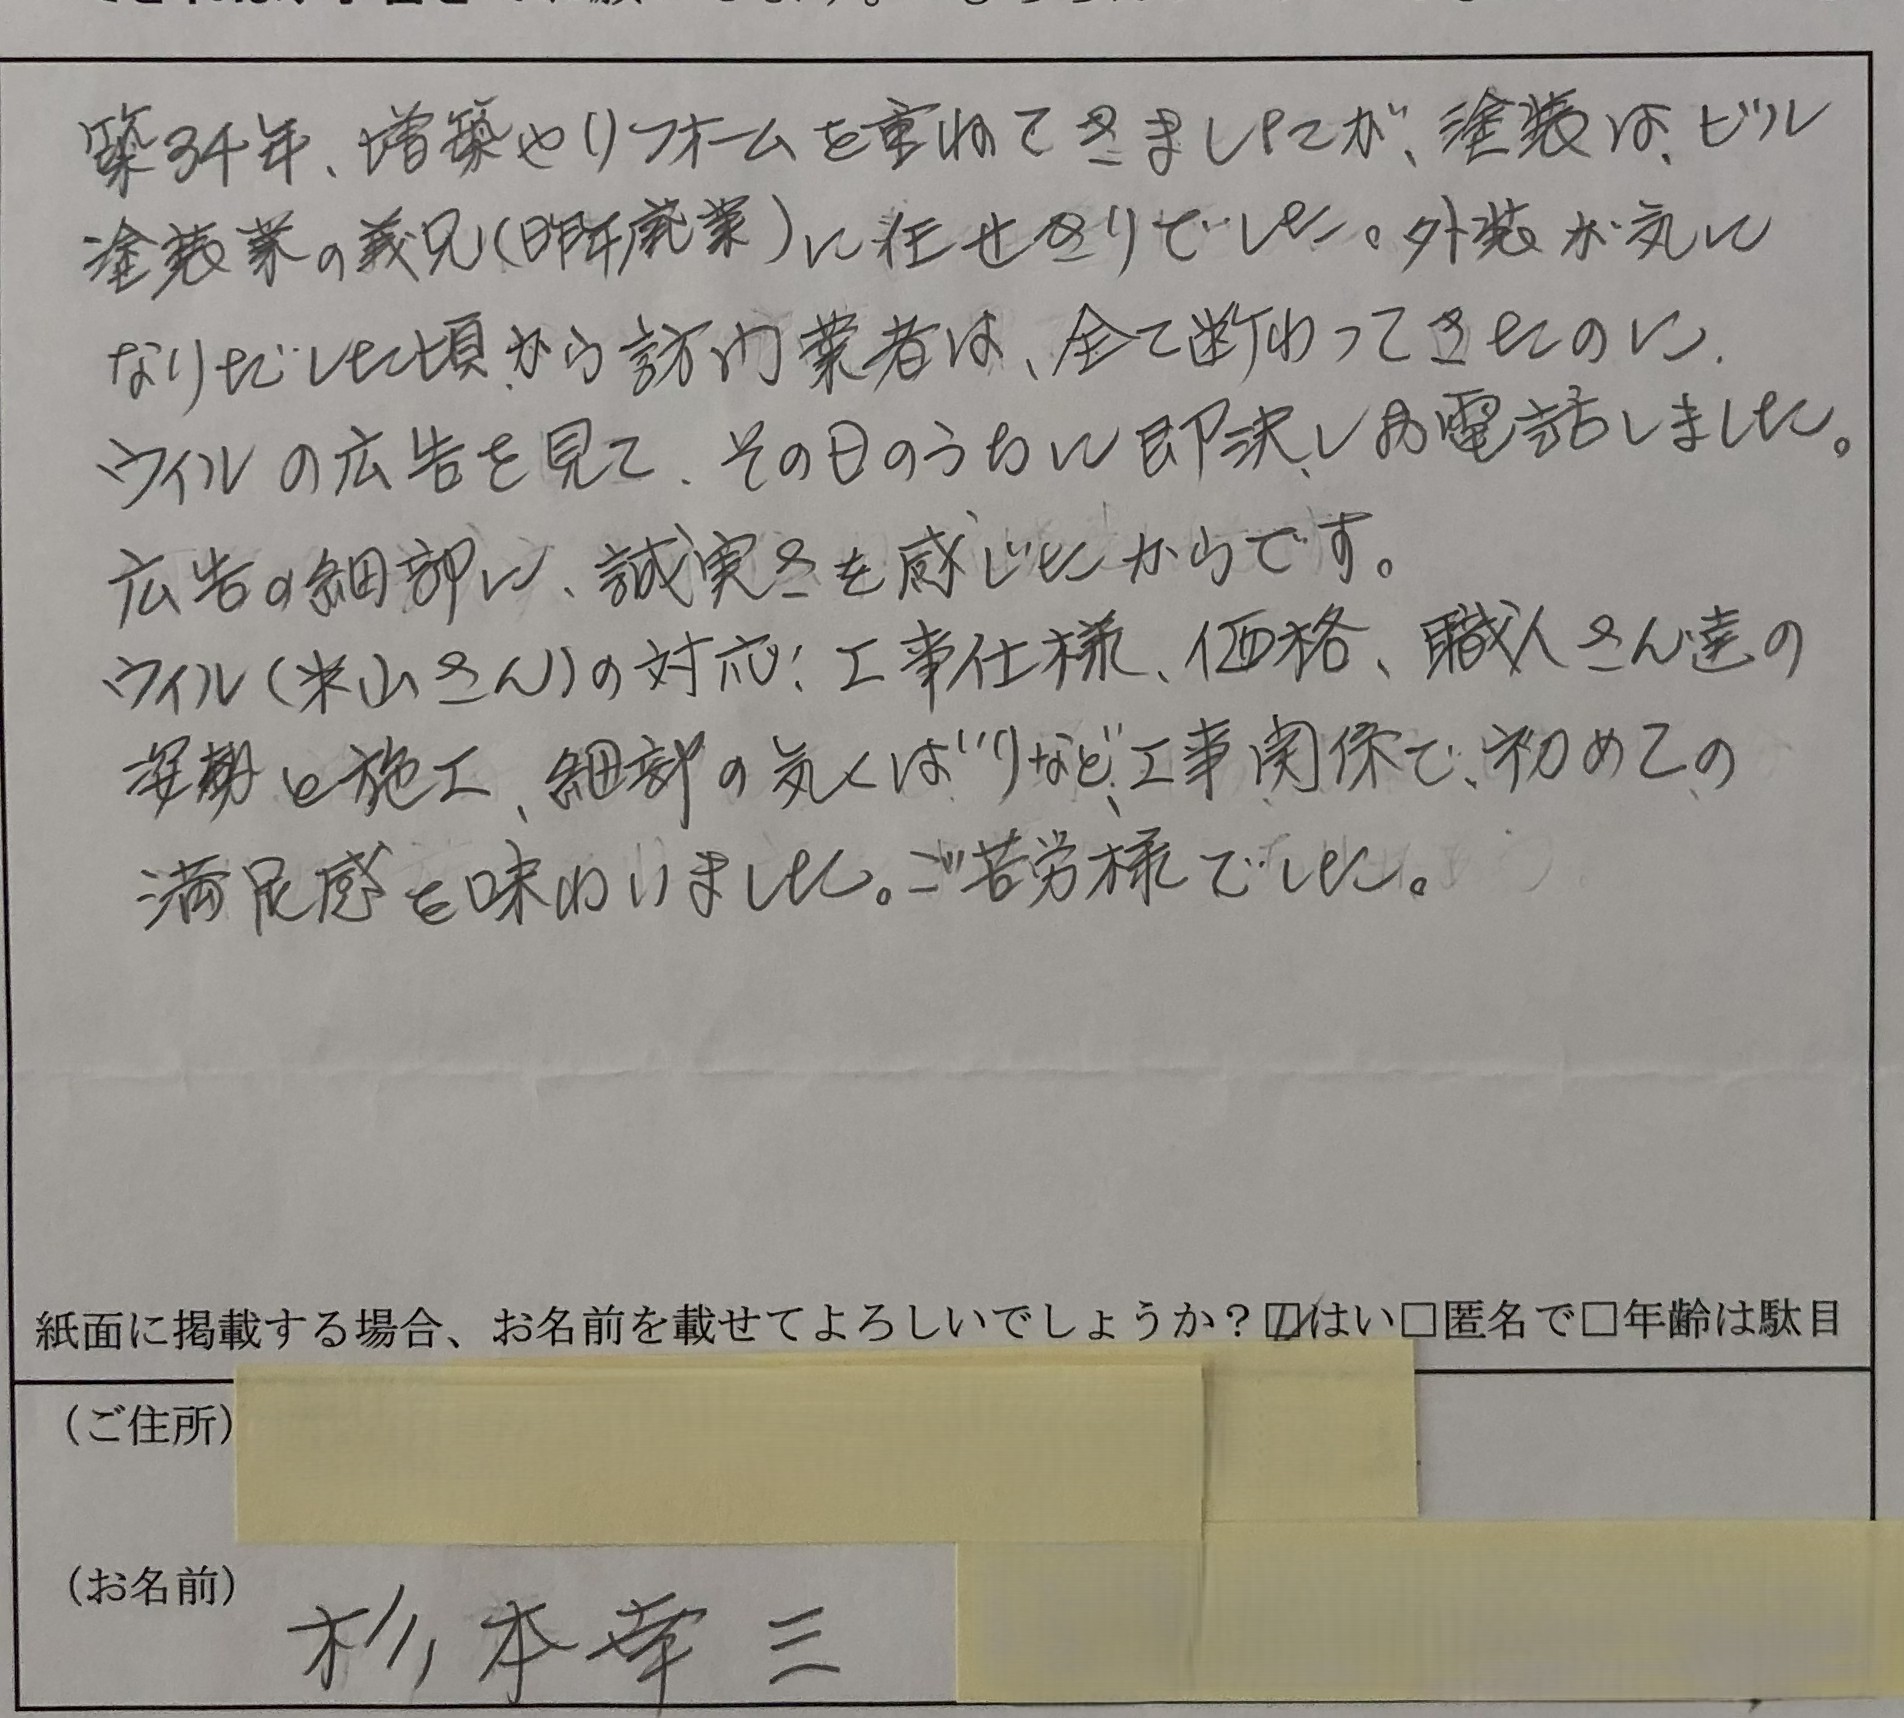 築34年、増築やリフォームを重ねてきましたが、塗装は、ビル
塗装業の義兄(昨年廃業)に任せきりでした。外装が気に
なりだした頃から訪問業者は、全て断わってきたのに、
ウィルの広告を見て、その日のうちに即決しお電話しました。
広告の細部に、誠実さを感じたからです。
ウィル(米山さん)の対応、工事仕様、価格、職人さん達の
姿勢と施工、細部の気くばりなど、工事関係で、初めての
満足感を味わいました。ご苦労様でした。
紙面に掲載する場合、お名前を載せてよろしいでしょうか?☑はい□匿名で□年齢は駄目
(ご住所)
(お名前) 杉本幸三